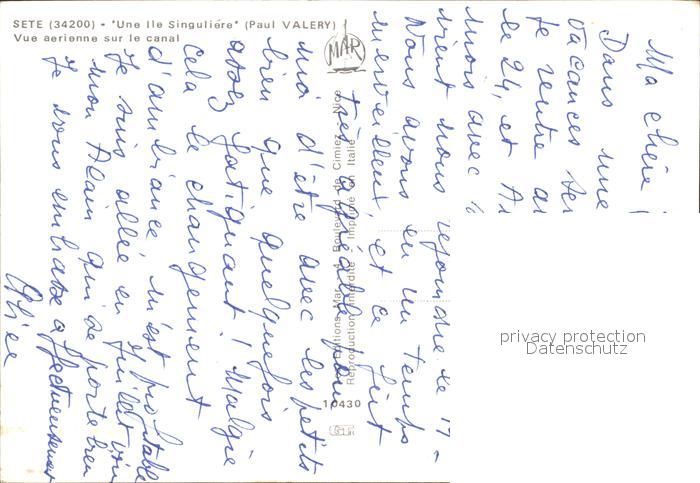 SETE (34200) - "Une Ile Singulière" (Paul VALERY)
Vue aerienne sur le canal
MAR
Editions Mar, Boulevard de Cimiez - Nice
Reproduction interdite - Imprimé en Italie
10430
privacy protection
Datenschutz
Ma chère
Dans une
vacances
je rentre
le 24, et
mois avec
vient nous rejoindre le 17
Nous avons eu un temps
merveilleux, et ce fut
très agréable pour
moi d'être avec les petits
bien que quelquefois
assez fatiguant! Malgré
cela le changement
d'ambiance m'est profitable
Je suis allée en Juillet voir
mon Alain qui se porte bien
Je vous embrasse affectueusement